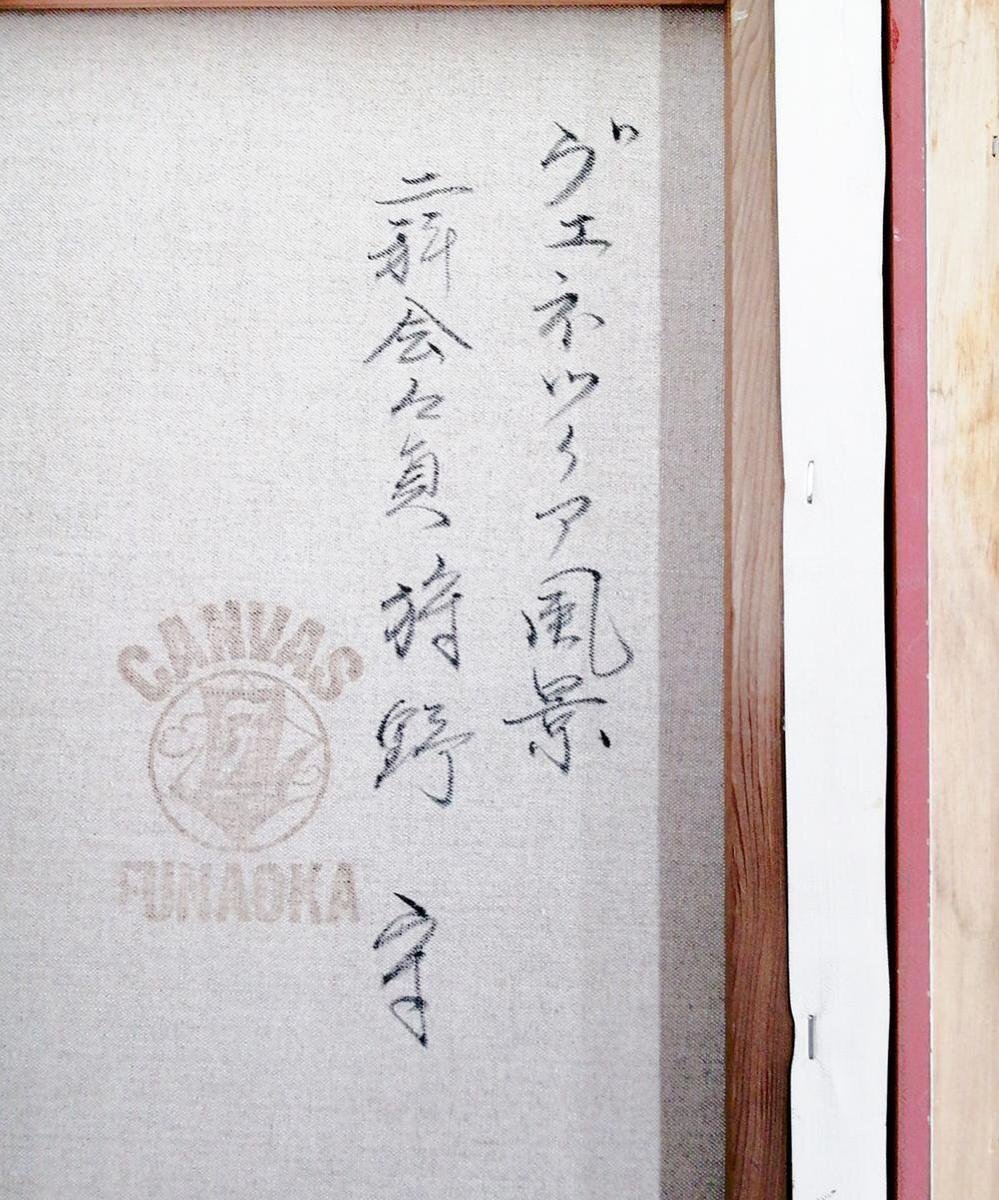 ヴェネツィア風景
二科会々員 狩野 守
CANVAS
FUNAOKA